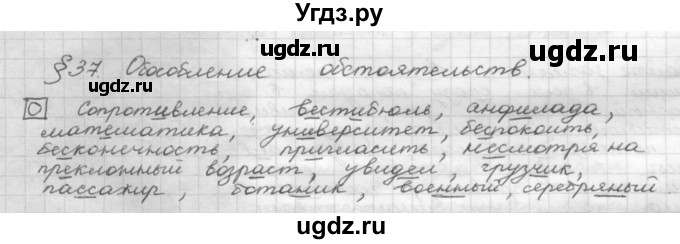 Угдз.ру
ugdz.ru ugdz.ru ugdz.ru
§ 37. Обособление обстоятельств.
О Сопротивление, вестибюль, анфилада,
математика, университет, беспокоить,
бесконечность, пригласить, несмотря на
преклонный возраст, увидел, грузчик,
пассажир, ботаник, военный, серебряный.
ugdz.ru ugdz.ru
ugdz.ru ugdz.ru ugdz.ru
ugdz.ru ugdz.ru
ugdz.ru